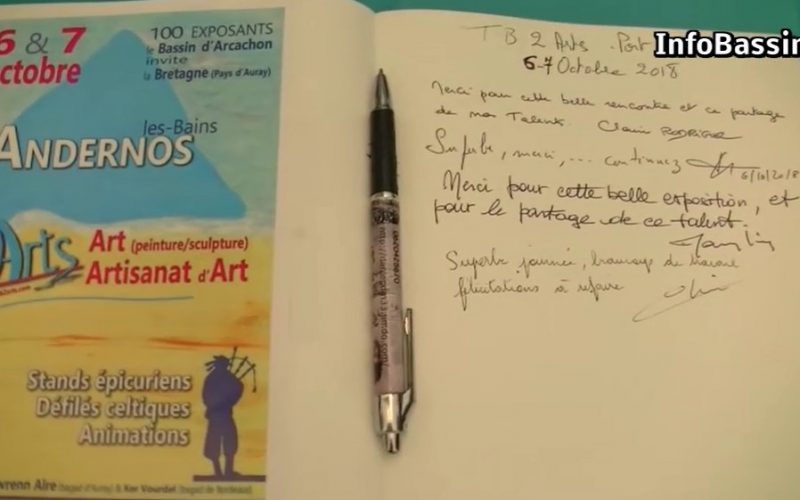 6 & 7
octobre
100 EXPOSANTS
le Bassin d'Arcachon
invite
la Bretagne (Pays d'Auray)
les-Bains
ANDERNOS
Arts
Art (peinture/sculpture)
Artisanat d'Art
Stands épicuriens
Défilés celtiques
Animations
wrenn Alre (bagad d'Auray) & Ker Vourdel (bagad de Bordeaux)
InfoBassin
TB 2 Arts . Port
6-7 Octobre 2018
Merci pour cette belle rencontre et ce partage
de nos Talents.
Superbe, merci, ... continuez
6/10/2018
Merci pour cette belle exposition, et
pour le partage de ce talent.
Superbe journée,
félicitations à refaire